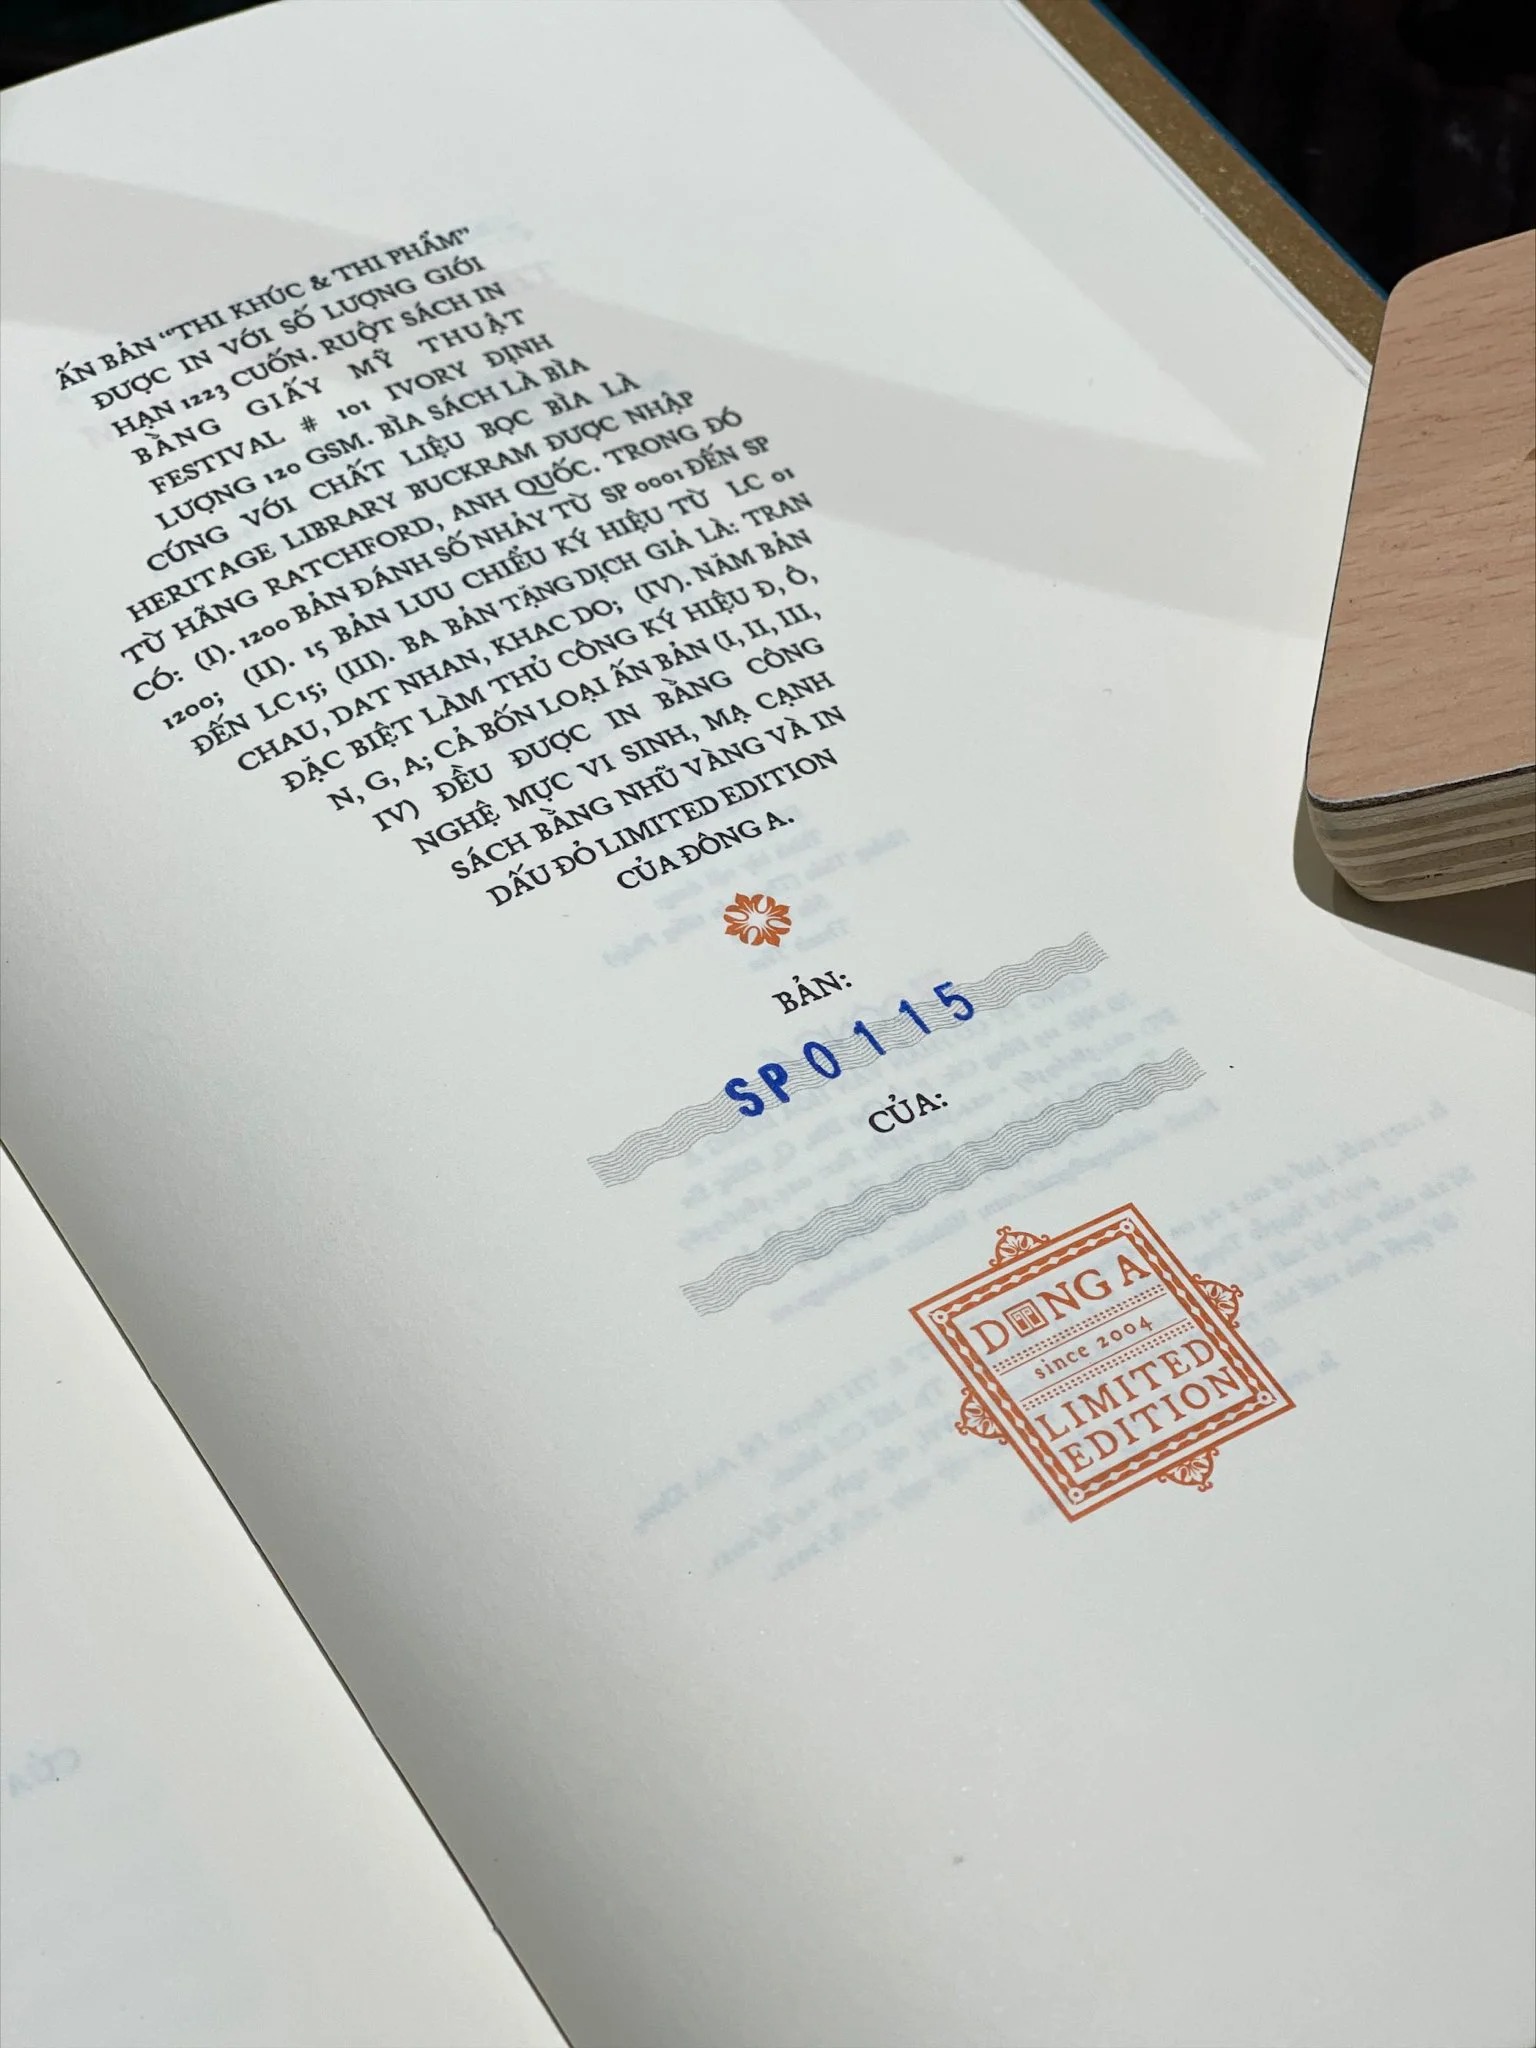 ẤN BẢN “THI KHÚC & THI PHẨM”
ĐƯỢC IN VỚI SỐ LƯỢNG GIỚI
HẠN 1223 CUỐN. RUỘT SÁCH IN
BẰNG GIẤY MỸ THUẬT
FESTIVAL # 101 IVORY ĐỊNH
LƯỢNG 120 GSM. BÌA SÁCH LÀ BÌA
CỨNG VỚI CHẤT LIỆU BỌC BÌA LÀ
HERITAGE LIBRARY BUCKRAM ĐƯỢC NHẬP
TỪ HÃNG RATCHFORD, ANH QUỐC. TRONG ĐÓ
CÓ: (I). 1200 BẢN ĐÁNH SỐ NHẢY TỪ SP 0001 ĐẾN SP
1200; (II). 15 BẢN LƯU CHIỂU KÝ HIỆU TỪ LC 01
ĐẾN LC15; (III). BA BẢN TẶNG DỊCH GIẢ LÀ: TRAN
CHAU, DAT NHAN, KHAC DO; (IV). NĂM BẢN
ĐẶC BIỆT LÀM THỦ CÔNG KÝ HIỆU Đ, Ô,
N, G, A; CẢ BỐN LOẠI ẤN BẢN (I, II, III,
IV) ĐỀU ĐƯỢC IN BẰNG CÔNG
NGHỆ MỰC VI SINH, MẠ CẠNH
SÁCH BẰNG NHŨ VÀNG VÀ IN
DẤU ĐỎ LIMITED EDITION
CỦA ĐÔNG A.
BẢN:
SP0115
CỦA:
DONG A
since 2004
LIMITED
EDITION